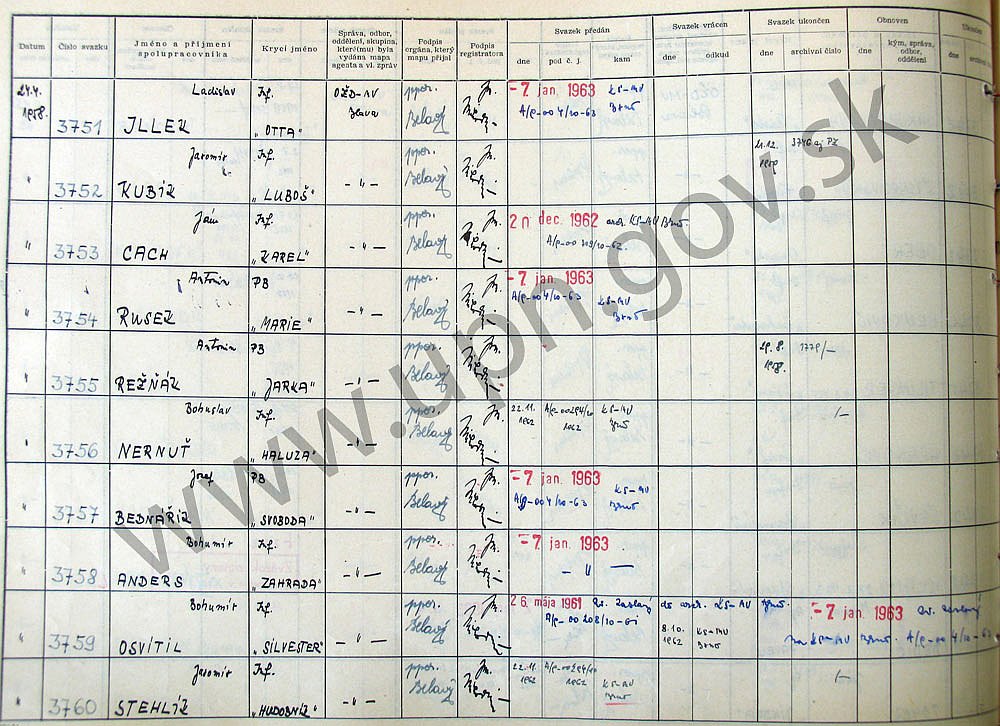 Datum
Číslo svazku
Jméno a příjmení
spolupracovníka
Krycí jméno
Správa, odbor,
oddělení, skupina,
které(mu) byla
vydána mapa
agenta a vl. zpráv
Podpis
orgána, který
mapu přijal
Podpis
registratora
Svazek předán
dne
pod č. j.
kam
Svazek vrácen
dne
odkud
Svazek ukončen
dne
archivní číslo
Obnoven
dne
kým, správa,
odbor,
oddělení
24.4.
1958.
3751
Ladislav
JLLEK
Inf.
"OTTA"
OŽD-NV
ppor.
Belavý
-7 jan. 1963
A/p-004/20-63
KS-MV
Brno
"
3752
Jaromír
KUBÍK
Inf.
"LUBOŠ"
- " -
ppor.
Belavý
21.12.
"
3753
Ján
CACH
Inf.
"KAREL"
- " -
ppor.
Belavý
20 dec. 1962
KS-MV Brno.
"
3754
Antonín
RUSEK
PB
"MARIE"
- " -
ppor.
Belavý
-7 jan. 1963
A/p-004/20-63
KS-MV
Brno
"
3755
Antonín
REŽŇÁK
PB
"JARKA"
- " -
ppor.
Belavý
29.8.
1958.
1779/-
"
3756
Bohuslav
NERNUŤ
Inf.
"HALUZA"
- " -
ppor.
Belavý
22.11.
1962
A/p-00294/20
1962
KS-MV
Brno
/-
"
3757
Josef
BEDNAŘÍK
PB
"SVOBODA"
- " -
ppor.
Belavý
-7 jan. 1963
A/p-004/20-63
KS-MV
Brno
"
3758
Bohumír
ANDERS
Inf.
"ZAHRADA"
- " -
ppor.
Belavý
-7 jan. 1963
- " -
"
3759
Bohumír
OSVÍTIL
Inf.
"SILVESTER"
- " -
ppor.
Belavý
26. mája 1961 zv. zaslaný do arch. KS-MV Brno.
A/p-00208/20-61
8.10.
1962
KS-MV
Brno
-7 jan. 1963 zv. zaslaný
na KS-MV Brno. A/p-004/20-63
"
3760
Jaromír
STEHLÍK
Inf.
"HUDOBNÍK"
- " -
ppor.
Belavý
22.11.
1962
A/p-00294/20
1962
KS-MV
Brno
/-
www.upn.gov.sk